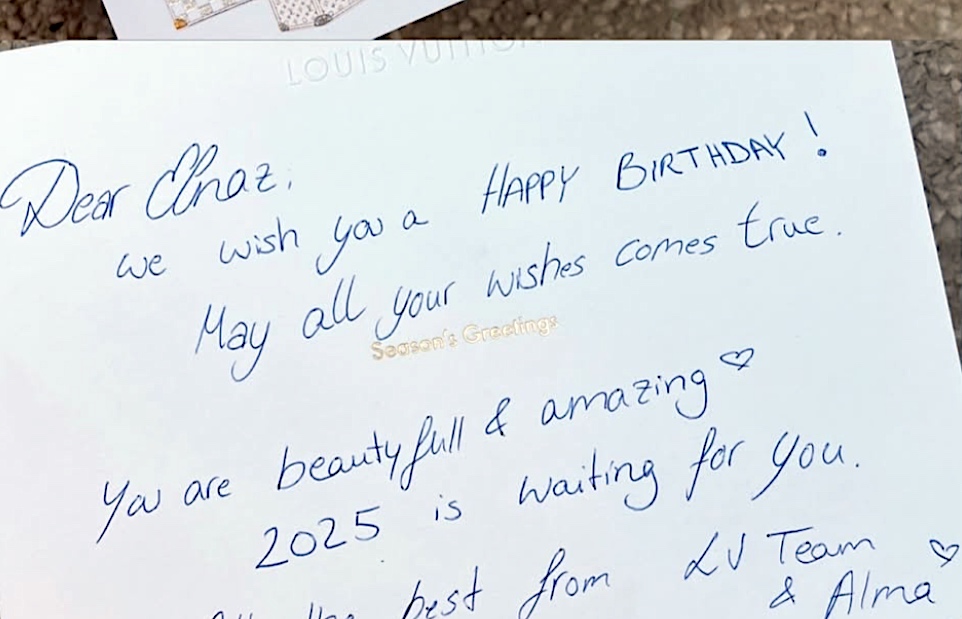 LOUIS VUITTON
Dear Elnaz,
we wish you a HAPPY BIRTHDAY!
May all your wishes comes true.
Season's Greetings
You are beautyfull & amazing ♡
2025 is waiting for you.
the best from LV Team ♡
& Alma